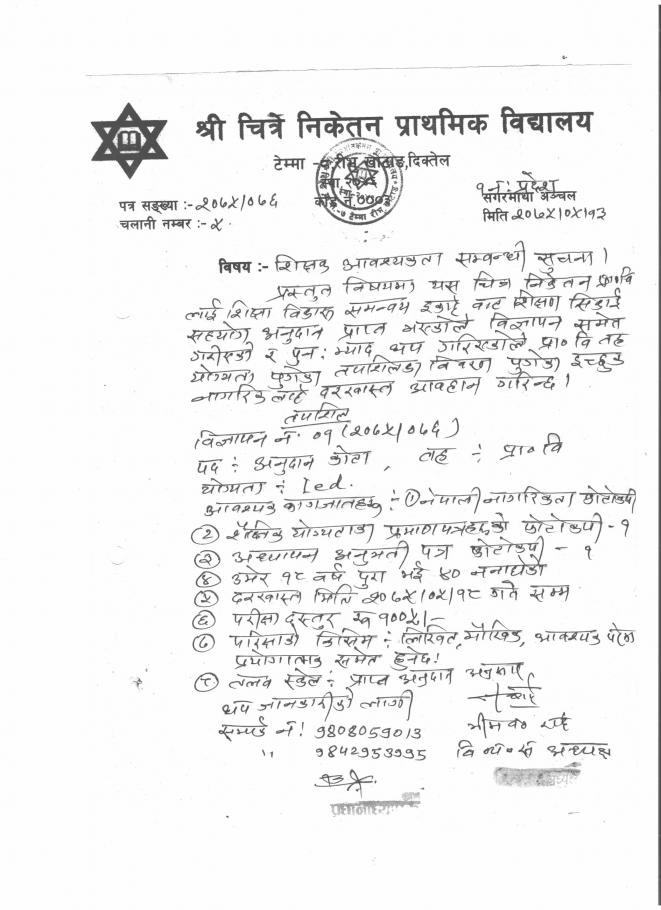 श्री चित्रे निकेतन प्राथमिक विद्यालय
टेम्मा खोटाङ, दिक्तेल
कोड नं. ७००३
१ नं. प्रदेश
सगरमाथा अञ्चल
पत्र सङ्ख्या :- २०७५/०७६
मिति २०७५/०८/१३
चलानी नम्बर :- ५
विषय :- शिक्षक आवश्यकता सम्वन्धी सुचना ।
प्रस्तुत विषयमा यस चित्रे निकेतन प्रा०वि
लाई शिक्षा विकास समन्वय इकाई वाट शिक्षण सिकाई
सहयोग अनुदान प्राप्त विज्ञापन समेत
र पुनः म्याद थप प्रा० वि तह
योग्यता पुगेको तपशिलका विवरण पुगेका इच्छुक
दरखास्त आवहान गरिन्छ ।
तपशिल
विज्ञापन नं. ०१ (२०७५/०७६)
पद : अनुदान कोटा , तह : प्रा० वि
योग्यता : I.ed.
आवश्यक कागजातहरु : ① नेपाली नागरिकता फोटोकपी
② शैक्षिक योग्यताका प्रमाणपत्रहरुको फोटोकपी - १
③ अध्यापन अनुमती पत्र फोटोकपी - १
④ उमेर १८ वर्ष पुरा भई ४० ननाघेको
⑤ दरखास्त मिति २०७५/०८/१८ गते सम्म
⑥ परीक्षा दस्तुर रु १००५/-
⑦ परिक्षाको किसिम : लिखित, मौखिक, आवश्यक परेमा
प्रयोगात्मक समेत हुनेछ ।
⑧ तलव स्केल : प्राप्त अनुदान अनुसार
थप जानकारीको लागी
सम्पर्क नं ! 9808059013
" 9842953995
वि०व्य०स अध्यक्ष
प्रधानाध्यापक